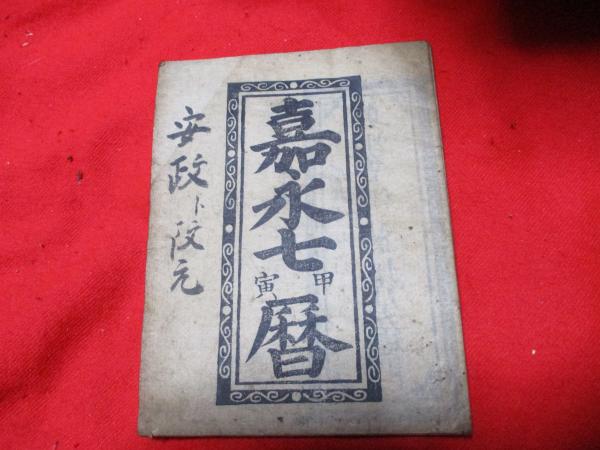 嘉永七甲寅暦
安政ト改元